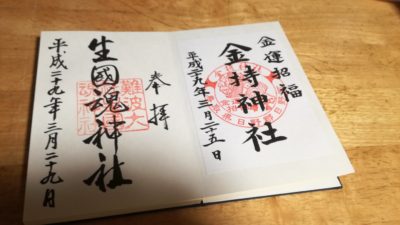 金運招福
金持神社
平成二十九年三月二十五日
奉拝
生國魂神社
平成二十九年三月二十九日